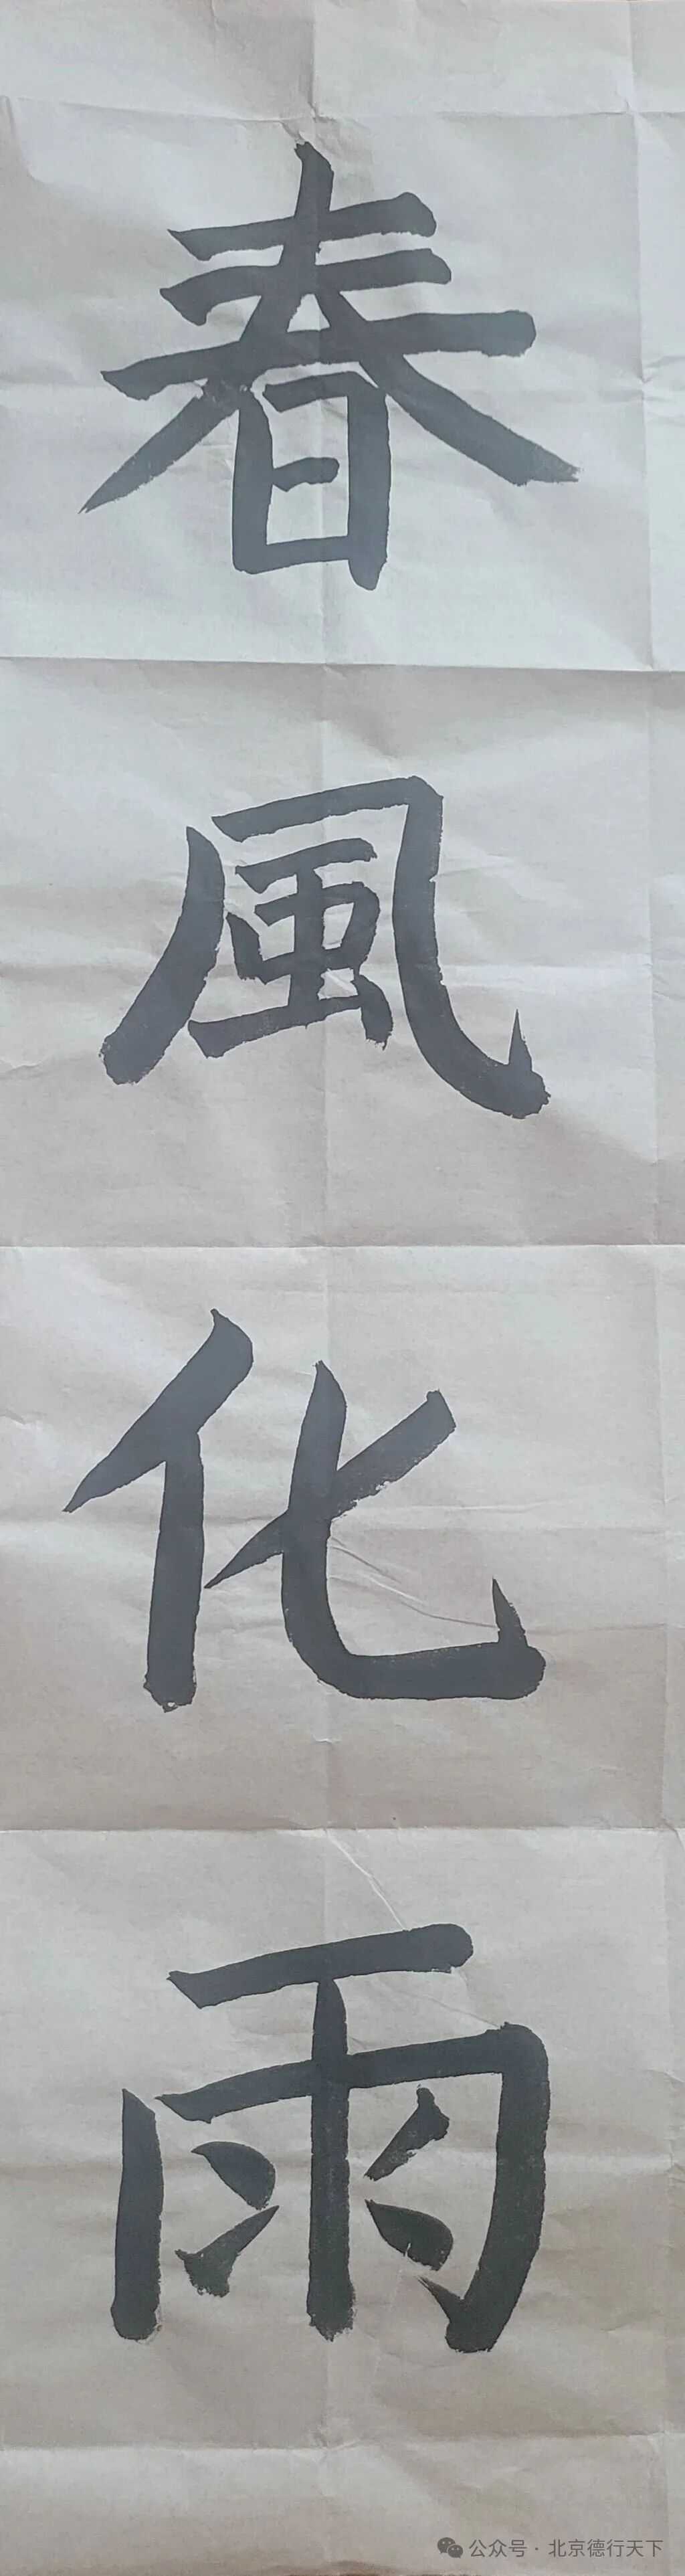 春風化雨
公众号·北京德行天下